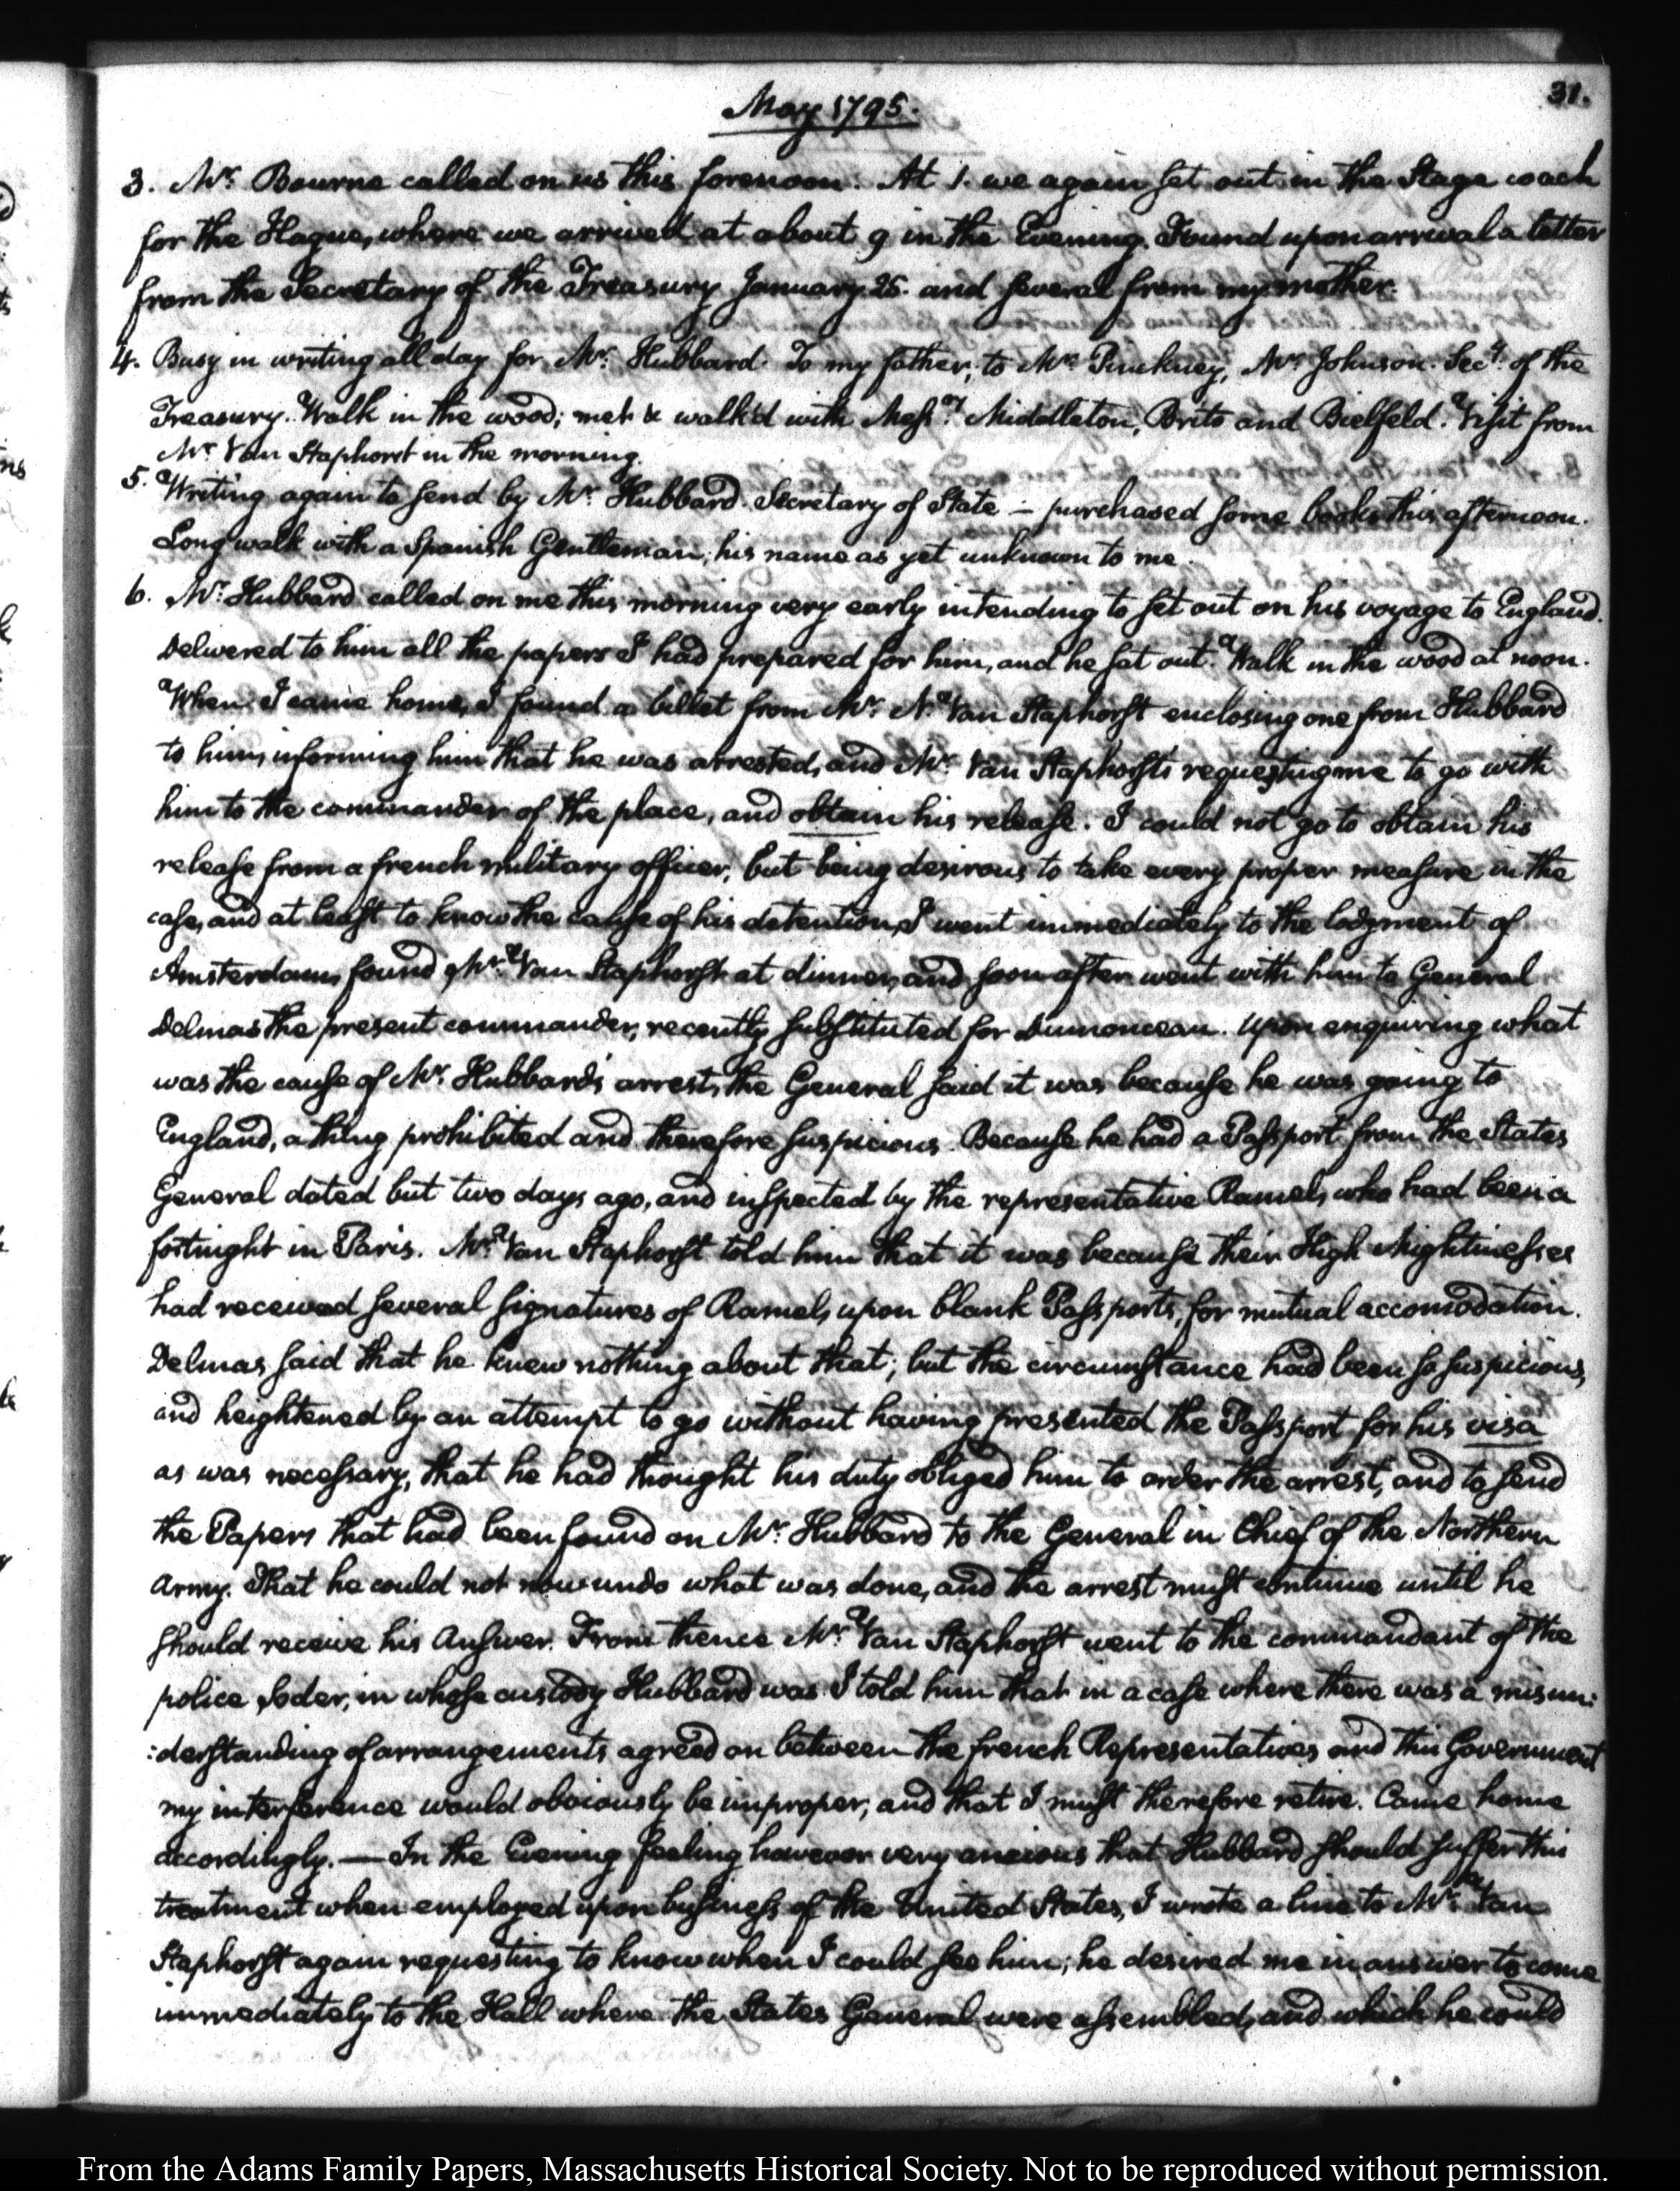 31.
May 1795.
3. Mr. Bourne called on us this forenoon. At 1. we again set out in the Stage coach
for the Hague, where we arrived at about 9 in the Evening. Found upon arrival a letter
from the Secretary of the Treasury January 26. and several from my mother.
4. Busy in writing all day for Mr. Hubbard. To my father, to Mr. Pinckney, Mr. Johnson. Secy. of the
Treasury. Walk in the wood; met & walk'd with Messrs. Middleton, Brito and Bielfeld. Visit from
Mr. Van Staphorst in the morning.
5. Writing again to send by Mr. Hubbard. Secretary of State — purchased some books this afternoon.
Long walk with a Spanish Gentleman, his name as yet unknown to me.
6. Mr. Hubbard called on me this morning very early intending to set out on his voyage to England.
Delivered to him all the papers I had prepared for him, and he sat out. Walk in the wood at noon.
When I came home, I found a billet from Mr. N. Van Staphorst enclosing one from Hubbard
to him, informing him that he was arrested, and Mr. Van Staphorst's requesting me to go with
him to the commander of the place, and obtain his release. I could not go to obtain his
release from a french military officer, but being desirous to take every proper measure in the
case, and at least to know the cause of his detention, I went immediately to the lodgment of
Amsterdam, found Mr. Van Staphorst at dinner, and soon after went with him to General
Delmas the present commander, recently substituted for Dumonceau. Upon enquiring what
was the cause of Mr. Hubbard's arrest, the General said it was because he was going to
England, a thing prohibited and therefore suspicious. Because he had a Passport from the States
General dated but two days ago, and inspected by the representative Ramel, who had been a
fortnight in Paris. Mr. Van Staphorst told him that it was because their High Mightinesses
had received several signatures of Ramel, upon blank Passports, for mutual accomodation.
Delmas said that he knew nothing about that; but the circumstance had been so suspicious,
and heightened by an attempt to go without having presented the Passport for his visa
as was necessary, that he had thought his duty obliged him to order the arrest, and to send
the Papers that had been found on Mr. Hubbard to the General in Chief of the Northern
Army. That he could not now undo what was done, and the arrest must continue until he
should receive his Answer. From thence Mr. Van Staphorst went to the commandant of the
police Soder, in whose custody Hubbard was. I told him that in a case where there was a misun:
:derstanding of arrangements agreed on between the french Representatives and this Government
my interference would obviously be improper, and that I must therefore retire. Came home
accordingly. — In the Evening feeling however very anxious that Hubbard should suffer this
treatment when employed upon business of the United States, I wrote a line to Mr. Van
Staphorst again requesting to know when I could see him; he desired me in answer to come
immediately to the Hall where the States General were assembled, and which he could
From the Adams Family Papers, Massachusetts Historical Society. Not to be reproduced without permission.